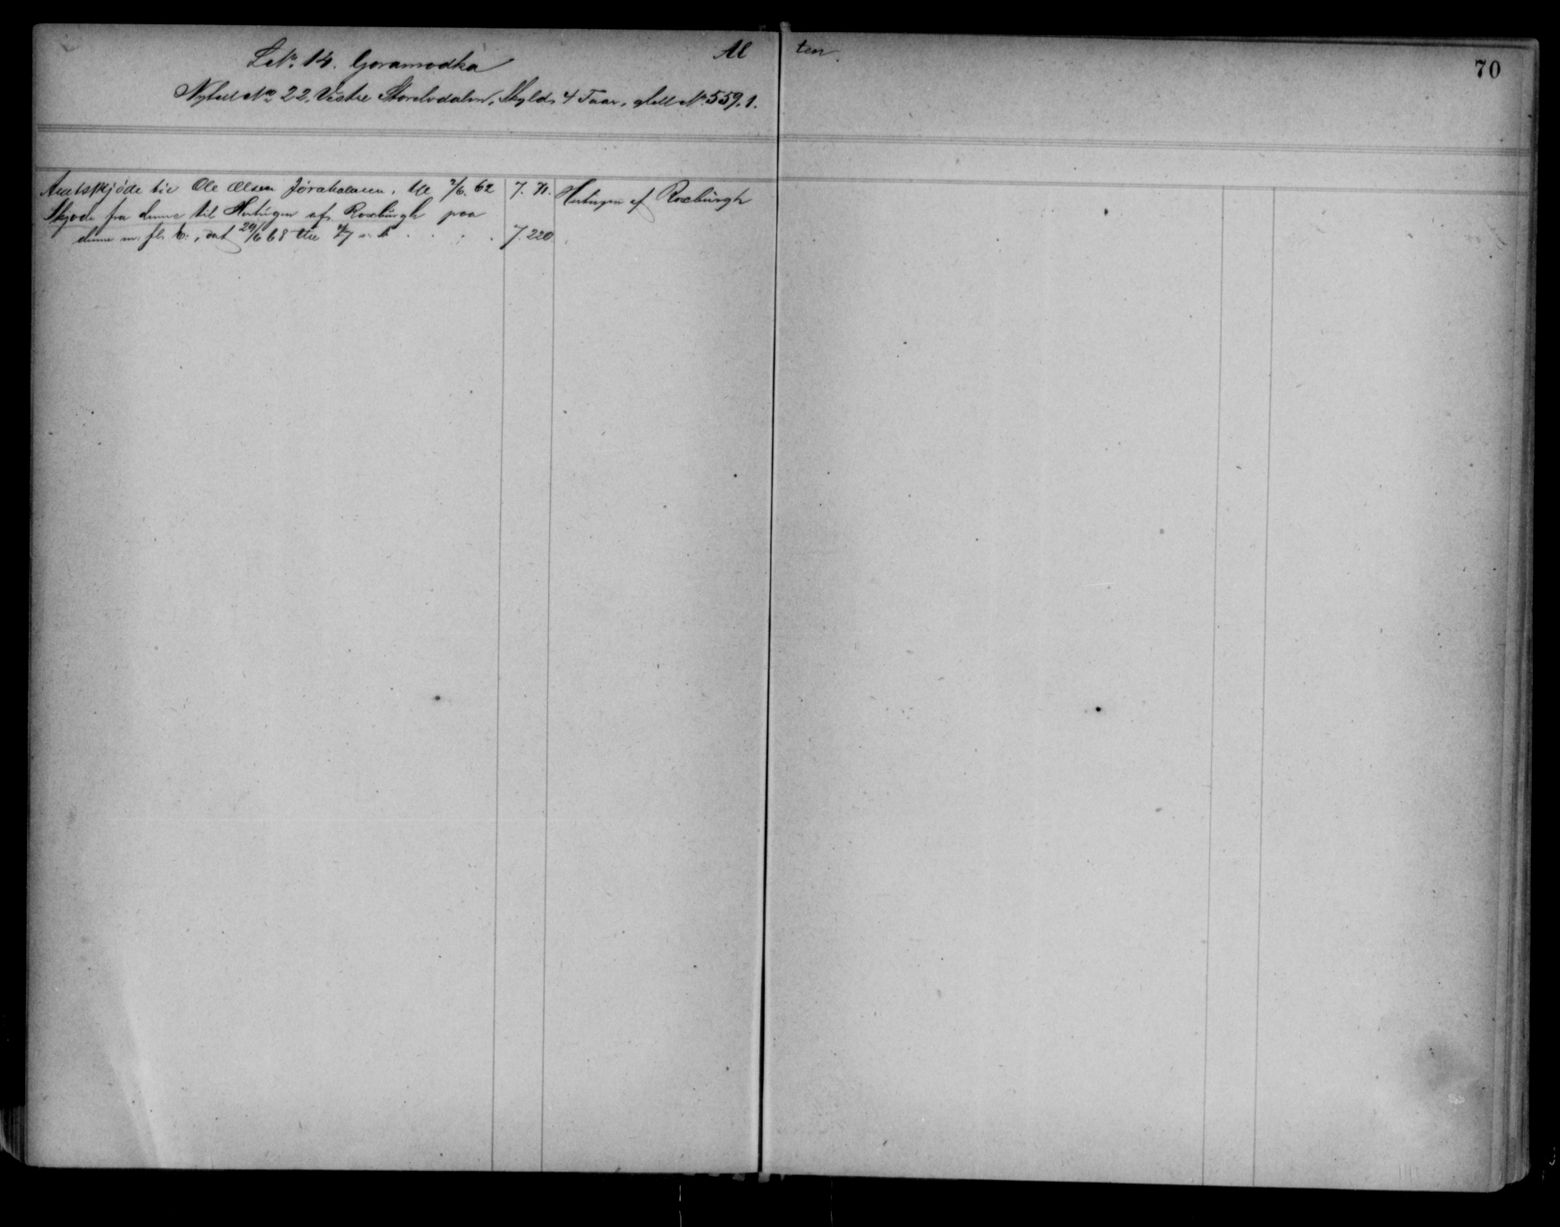 Al ten.
70
L. No. 14. Goramodka
Nyt No 22. Vestre Storelvdalen, Skyld, 4 Skar, No. 559.1.
Amtsskjøde til Ole Olsen Jørahalmen, tl 2/6. 62 7. 71. Hertugen af Roxburgh
Skjøde fra denne til Hertugen af Roxburgh paa
denne m. fl. E., dat 29/6 68 tll /7 s. A. . . . 7. 220